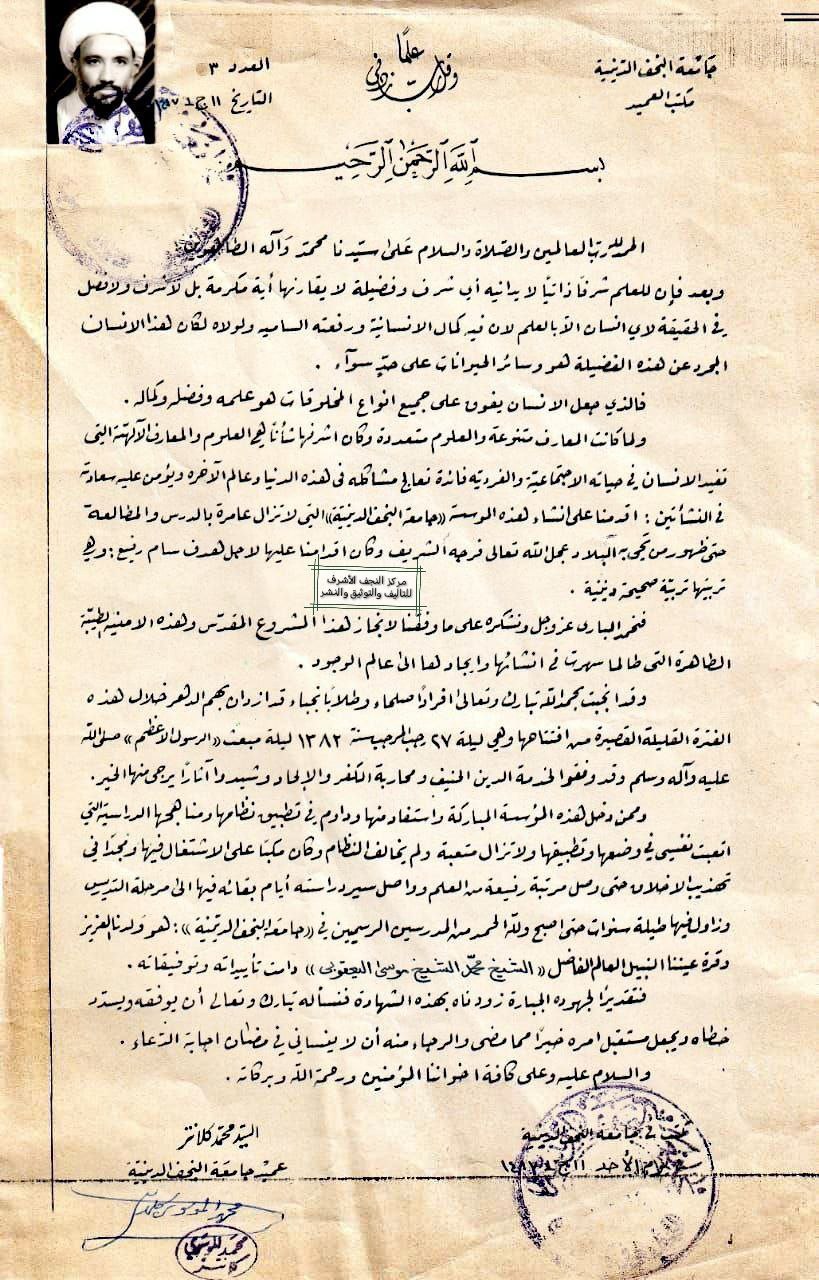 جامعة النجف الدينية
مكتب العميد
وقل رب زدني علمًا
العدد ٣
التاريخ ١١ ج ١
بسم الله الرحمن الرحيم
الحمد لله رب العالمين والصلاة والسلام على سيدنا محمد وآله الطاهرين
وبعد فإن للعلم شرفًا ذاتيًا لا يدانيه أي شرف وفضيلة لا يقارنها أية مكرمة بل لا شرف ولا فضل
في الحقيقة لأي انسان الا بالعلم لان فيه كمال الانسانية ورفعته الساميه ولولاه لكان هذا الانسان
المجرد عن هذه الفضيلة هو وسائر الحيوانات على حدٍ سوآء .
فالذي جعل الانسان يفوق على جميع انواع المخلوقات هو علمه وفضله وكماله .
ولما كانت المعارف متنوعة والعلوم متعددة وكان اشرفها شأنًا هي العلوم والمعارف الآلهية التي
تفيد الانسان في حياته الاجتماعية والفردية فائدة تعالج مشاكله في هذه الدنيا وعالم الآخره ويؤمن عليه سعادته
في النشأتين : اقدمنا على انشاء هذه الموسسة «جامعة النجف الدينية» التي لا تزال عامرة بالدرس والمطالعة
حتى ظهور من تحيى به البلاد عجل الله تعالى فرجه الشريف وكان اقدامنا عليها لاجل هدف سام رفيع : وهي
تربيتها تربية صحيحة دينية .
مركز النجف الأشرف
للتأليف والتوثيق والنشر
فنحمد البارى عز وجل ونشكره على ما وفقنا لانجاز هذا المشروع المقدس وهذه الامنيه الطيبة
الطاهرة التى طالما سهرت في انشائها وايجادها الى عالم الوجود .
وقد انجبت بحمد الله تبارك وتعالى افرادًا صلحاء وطلابًا نجباء قد ازدان بهم الدهر خلال هذه
الفترة القليلة القصيرة من افتتاحها وهي ليلة ٢٧ رجب المرجب سنة ١٣٨٢ ليلة مبعث «الرسول الاعظم» صلى الله
عليه وآله وسلم وقد وفقوا لخدمة الدين الحنيف ومحاربة الكفر والإلحاد وشيدوا آثارًا يرجى منها الخير.
وممن دخل هذه المؤسسة المباركة واستفاد منها وداوم في تطبيق نظامها ومناهجها الدراسية التي
اتعبت نفسي في وضعها وتطبيقها ولا تزال متعبة ولم يخالف النظام وكان مكبًا على الاشتغال فيها ومجدًا في
تهذيب الاخلاق حتى وصل مرتبة رفيعة من العلم وواصل سير دراسته أيام بقائه فيها الى مرحلة التدريس
وزاول فيها طيلة سنوات حتى اصبح ولله الحمد من المدرسين الرسميين في «جامعة النجف الدينية» : هو ولدنا العزيز
وقرة عيننا النبيل العالم الفاضل «الشيخ محمد الشيخ موسى اليعقوبي» دامت تأييداته وتوفيقاته .
فتقديرًا لجهوده الجبارة زودناه بهذه الشهادة فنسأله تبارك وتعالى أن يوفقه ويسدد
خطاه ويجعل مستقبل امره خيرًا مما مضى والرجاء منه أن لا ينساني في مضان اجابة الدعاء .
والسلام عليه وعلى كافة اخواننا المؤمنين ورحمة الله وبركاته .
كتب في جامعة النجف الدينية
يوم الأحد ١١ ج ١
السيد محمد كلانتر
عميد جامعة النجف الدينية
محمد الموسوي كلانتر
محمد الموسوي
كلانتر